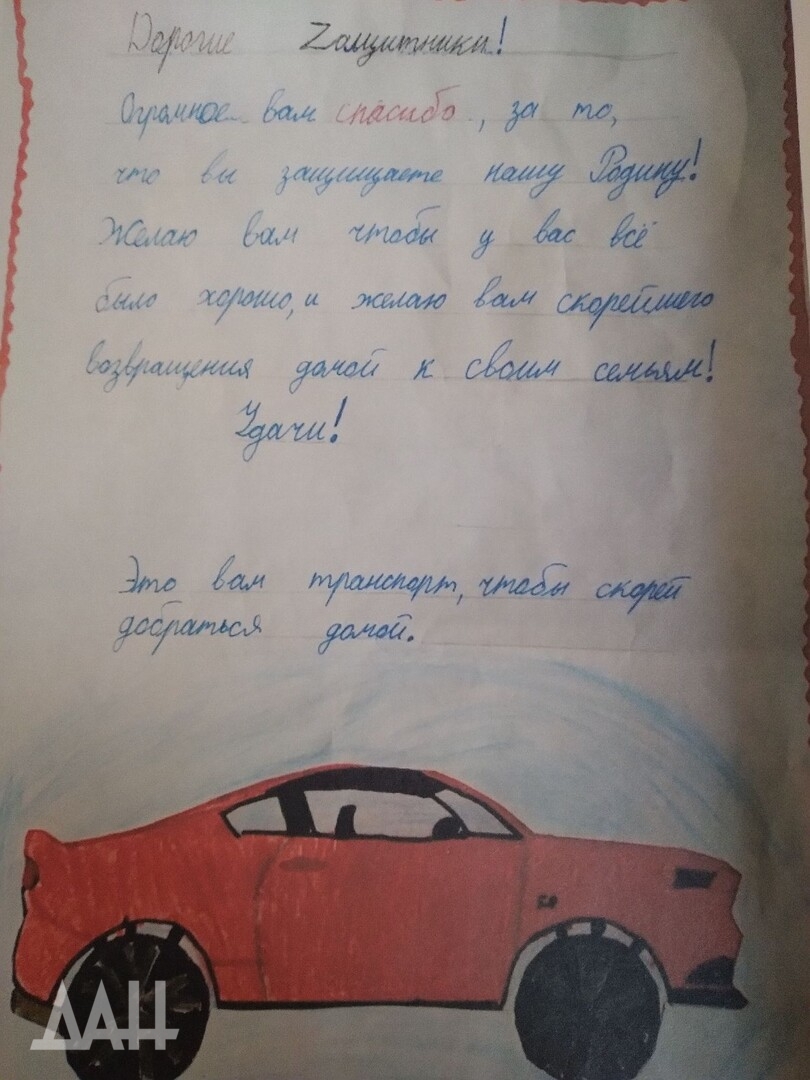 Дорогие Zащитники!
Огромное вам спасибо, за то,
что вы защищаете нашу Родину!
Желаю вам чтобы у вас всё
было хорошо, и желаю вам скорейшего
возвращения домой к своим семьям!
Удачи!
Это вам транспорт, чтобы скорей
добраться домой.
ДАН